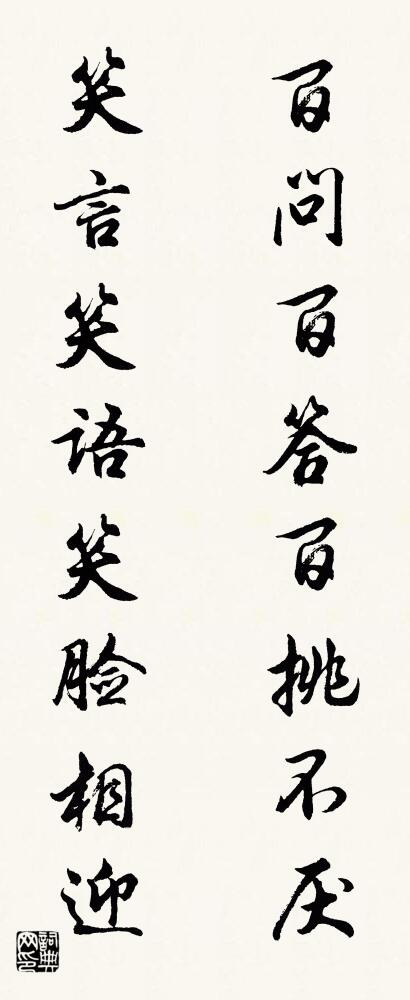 百問百答百挑不厌
笑言笑语笑脸相迎
詞典网印